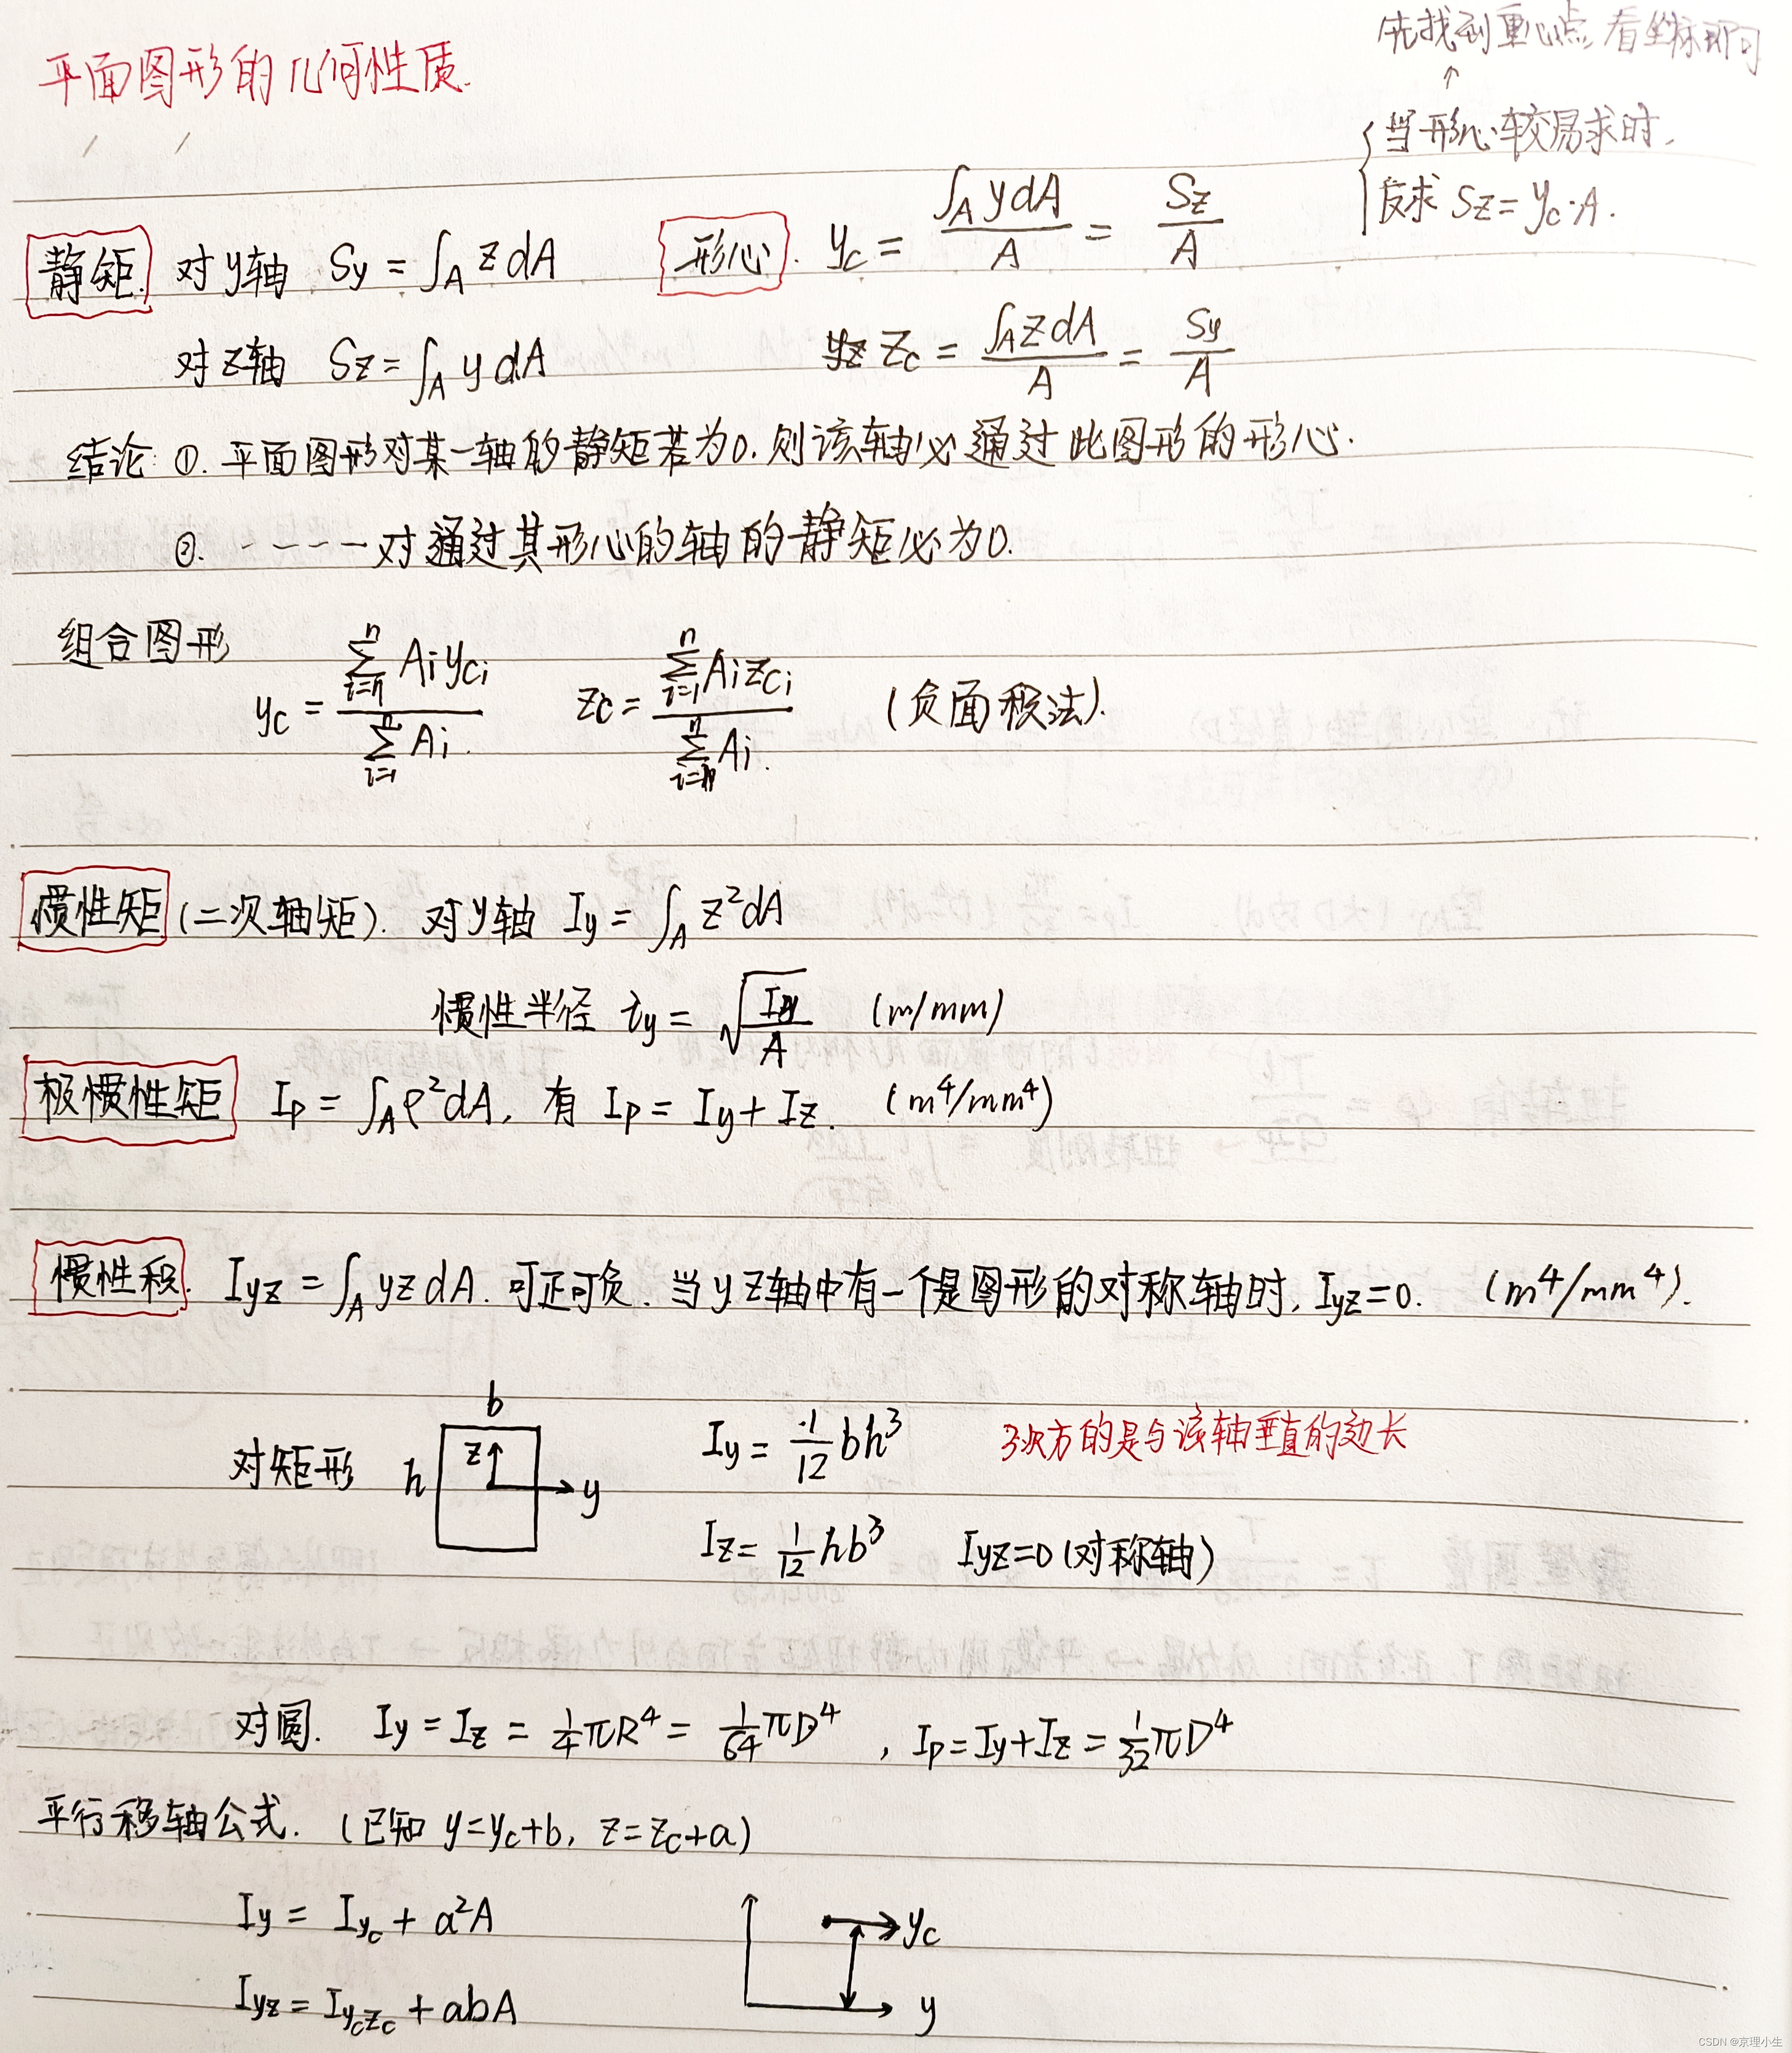 先找到重心点,看坐标即可
↑
平面图形的几何性质.
当形心较易求时,
反求 Sz = yc·A.
静矩. 对y轴 Sy = ∫A z dA 形心. yc = ∫A y dA / A = Sz / A
对z轴 Sz = ∫A y dA zc = ∫A z dA / A = Sy / A
结论: ①. 平面图形对某一轴的静矩若为0.则该轴必通过此图形的形心.
②. ----对通过其形心的轴的静矩必为0.
组合图形
yc = Σ Ai yci / Σ(i=1→n) Ai. zc = Σ(i=1→n) Ai zci / Σ Ai. (负面积法).
惯性矩 (二次轴矩). 对y轴 Iy = ∫A z² dA
惯性半径 iy = √(Iy / A) (m/mm)
极惯性矩 Ip = ∫A ρ² dA, 有 Ip = Iy + Iz. (m⁴/mm⁴)
惯性积. Iyz = ∫A yz dA. 可正可负. 当y z轴中有一个是图形的对称轴时, Iyz=0. (m⁴/mm⁴).
b
对矩形 h z y Iy = 1/12 bh³ 3次方的是与该轴垂直的边长
Iz = 1/12 hb³ Iyz=0 (对称轴)
对圆. Iy = Iz = 1/4 πR⁴ = 1/64 πD⁴ , Ip = Iy+Iz = 1/32 πD⁴
平行移轴公式. (已知 y=yc+b, z=zc+a)
Iy = Iyc + a²A yc
Iyz = Iyczc + abA y
CSDN @京理小生